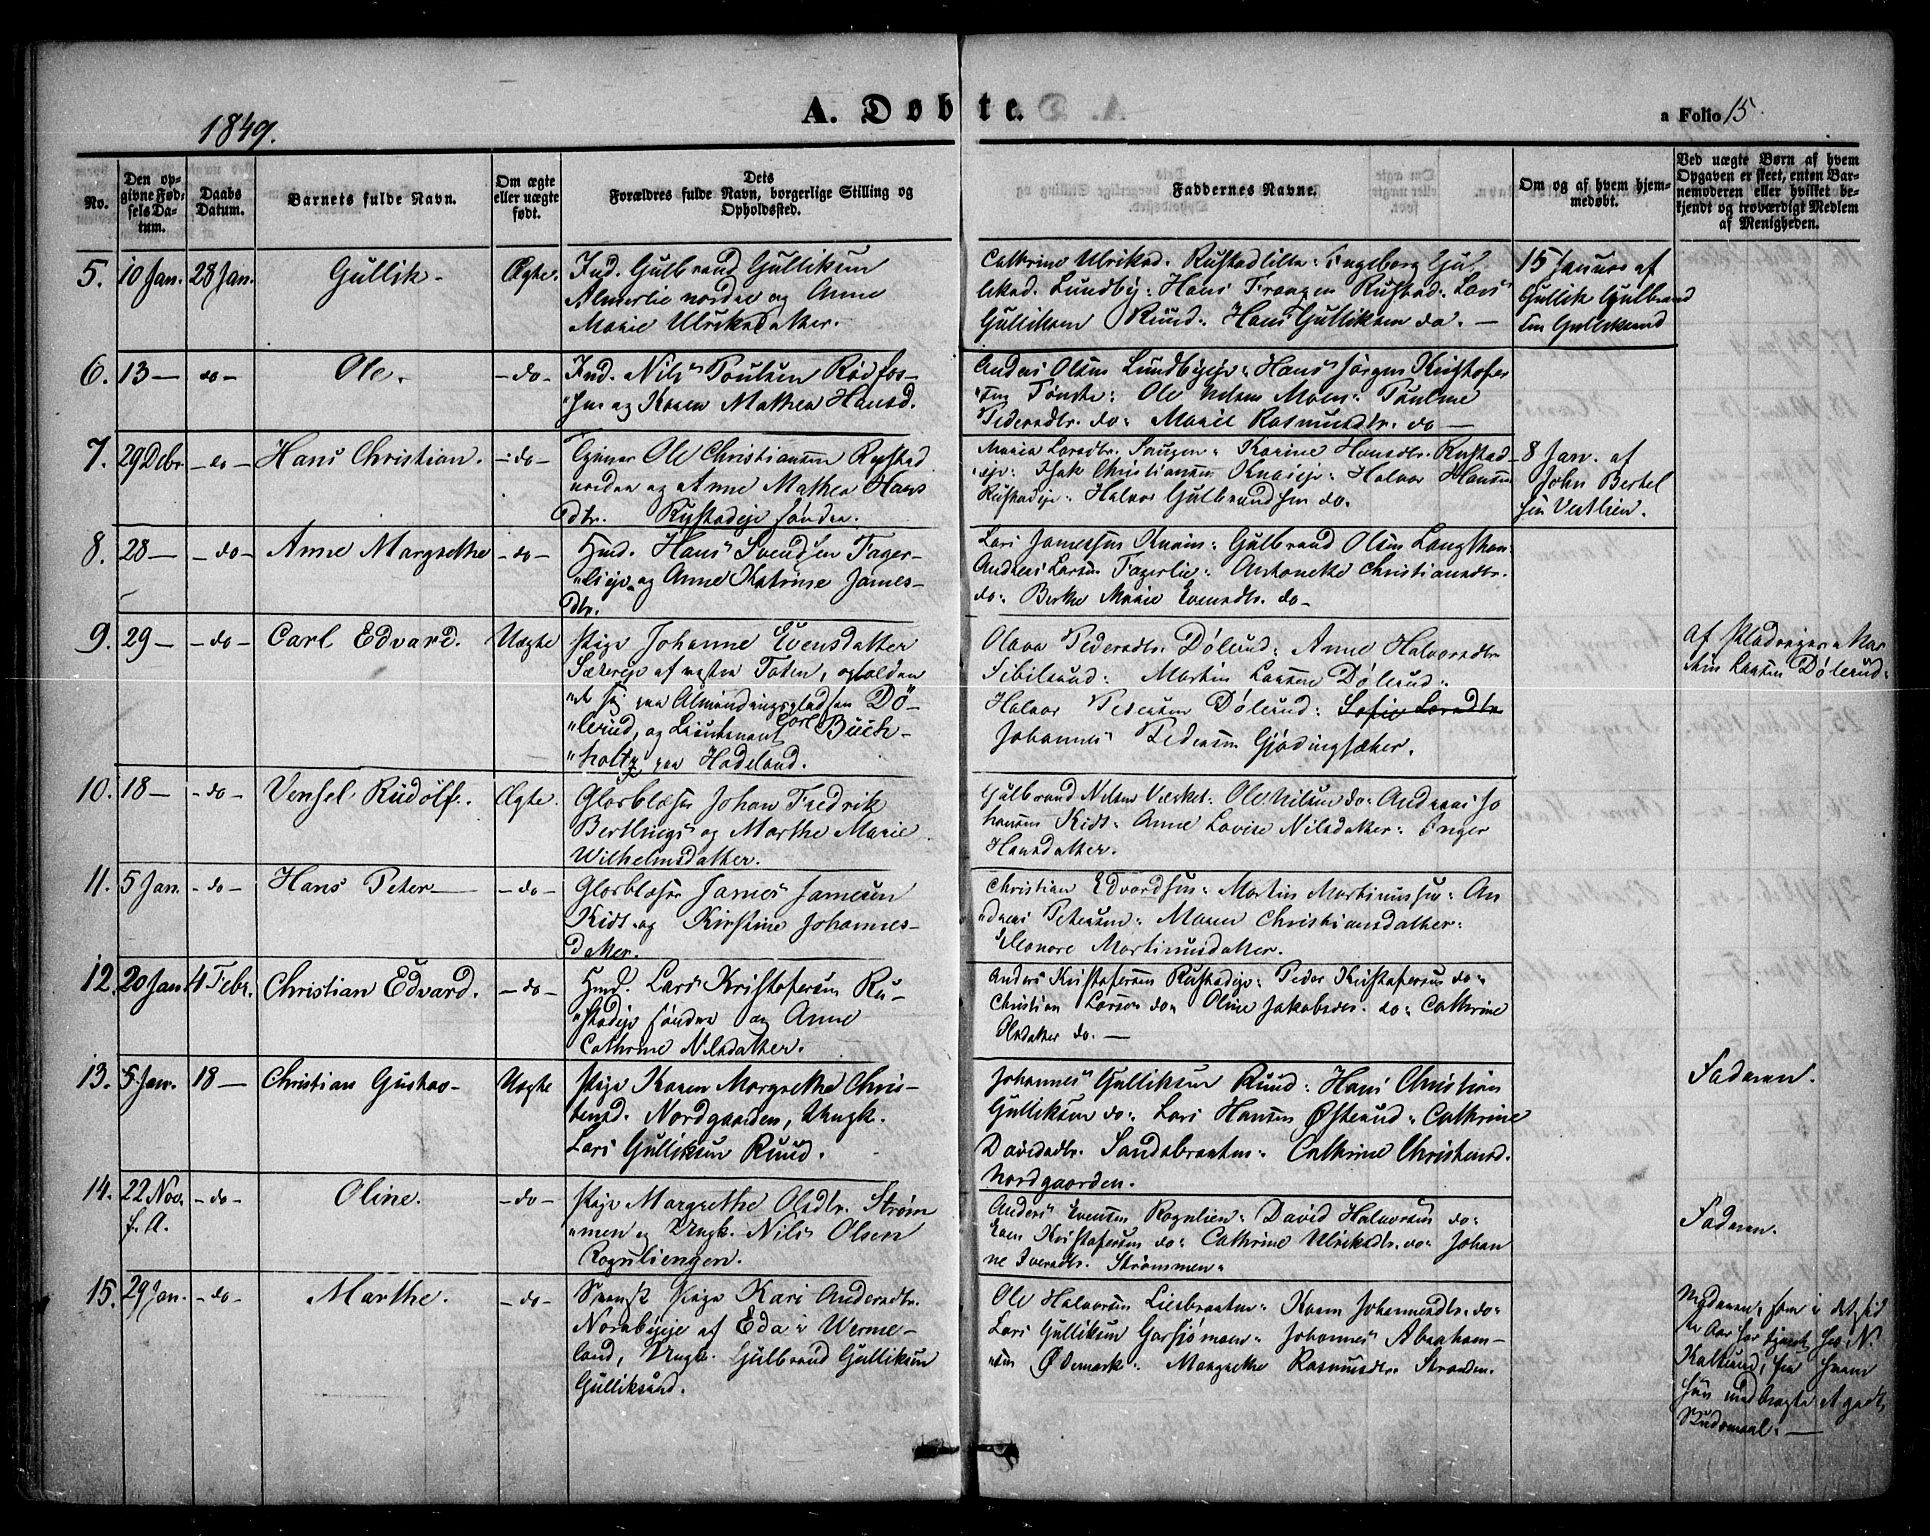 1849.
A. Døbte.
a Folio 15.
No.
Den opgivne Fødselsdatum.
Daabs Datum.
Barnets fulde Navn.
Om ægte eller uægte født.
Dets Forældres fulde Navn, borgerlige Stilling og Opholdssted.
Faddernes Navne.
Om og af hvem hjemmedøbt.
Ved uægte Børn af hvem Opgaven er skeet, enten Barnemoderen eller hvilket bekjendt og troværdigt Medlem af Menigheden.
5. 10 Jan. 28 Jan. Gullik. Ægte.
Ind. Gulbrand Gulliksen
Almerlie nordre og Anne
Marie Ulriksdatter.
Cathrine Ulriksd. Rustadlille: Ingeborg Gul
liksd. Lundby: Hans Frangen Rustad: Lars
Gulliksen Ruud: Hans Gulliksen do. —
15 Januar af
Gullik Gulbrand
sen Gulliksrud
6. 13 — do — Ole. — do —
Ind. Nils Poulsen Rødfos-
"sen og Karen Mathea Hansd.
Anders Olsen Lundbyeje: Hans Jørgen Kristofer
"sen Tønste: Ole Nilsen Moen: Pauline
Pedersdtr. do: Marie Rasmusdtr. do —
7. 29 Debr. — do — Hans Christian. — do —
Gjører Ole Christiansen Rustad
nordre og Anne Mathea Hans
dtr. Rustadeje søndre.
Maria Larsdtr. Karine Hansdtr. Rustad
eje: Isak Christiansen Halvor Hansen
Rustadeje: Halvor Gulbrandsen do.
8 Jan. af
John Bertel
sen Vestlien.
8. 28 — — do Anne Margrethe — do —
Hmd. Hans Svendsen Fager-
"lieje og Anne Katrine James-
dtr.
Lars Jamessen Gulbrand Olsen
Andreas Larsen Fagerlie: Antonette Christiansdtr.
do: Berthe Marie Evensdtr. do —
9. 29 — — do Carl Edvard. Uægte
Pige Johanne Evensdatter
Sætereje af vestre Toten, opholden
"de sig paa Almindingspladsen Dø-
"lerud, og Lieutenant Carl Buch-
"holtz paa Hadeland.
Olava Pedersdtr. Dølerud: Anne Halvorsdtr.
Sibilsrud: Martin Larsen Dølerud:
Halvor Pedersen Dølerud: Sofie Larsdtr.
Johannes Pedersen Gjødingsæter.
af Pladseier Mar
tin Larsen Dølerud.
10. 18 — — do — Vensel Rudolf. Ægte.
Glasblæser Johan Fredrik
Bertlings og Marthe Marie
Wilhelmsdatter.
Gulbrand Nilsen Værket: Ole Nilsen do: Andreas Jo
hansen Kidt: Anne Lovise Nilsdatter: Inger
Hansdatter.
11. 5 Jan. — do — Hans Peter — — do —
Glasblæser James Jamesen
Kidt og Kirstine Johannes-
datter.
Christian Edvardsen: Martin Martinussen: An
"dreas Petersen: Maren Christiansdatter:
Eleonore Martinusdatter.
12. 20 Jan 4 Febr. Christian Edvard. — do —
Hmd. Lars Kristofersen Ru-
"stadeje søndre og Anne
Cathrine Nilsdatter.
Anders Kristofersen Rustadeje: Peder Kristofersen do:
Christian Larsen do: Oline Jakobsdtr. do: Cathrine
Olsdatter do. —
13. 5 Jan. 18 — Christian Gustav — Uægte
Pige Karen Margrethe Chris-
tensd. Nordgaarden, Ungk.
Lars Gulliksen Ruud.
Johannes Gulliksen Ruud: Hans Christian
Gulliksen do: Lars Hansen Østerud: Cathrine
Davidsdtr. Sandsbraaten: Cathrine Christensd.
Nordgaarden.
Faderen.
14. 22 Nov. — do — Oline. — do —
f. A.
Pige Margrethe Olsdtr. Strøm
"men og Ungk. Nils Olsen
Rognliengen.
Anders Evensen Rognlien: David Halvorsen do:
Even Kristofersen do: Cathrine Ulriksdtr. do: Johan
ne Iversdtr. Strømmen:
Faderen.
15. 29 Jan. — do — Marthe. — do —
Svensk Pige Kari Andersdtr.
Norebyeje af Eda i Werme-
land, Ungk. Gulbrand Gulliksen
Gulliksrud.
Ole Halvorsen Liesbraaten: Karen Johannesdtr. do:
Lars Gulliksen Garsjømoen: Johannes Abraham-
"sen Ødemark: Margrethe Rasmusdtr. Stranden.
Moderen, som i det sid
ste Aar har tjent hos N.
Kalsrud, for hvem
hun medbragte et godt
Skudsmaal. —